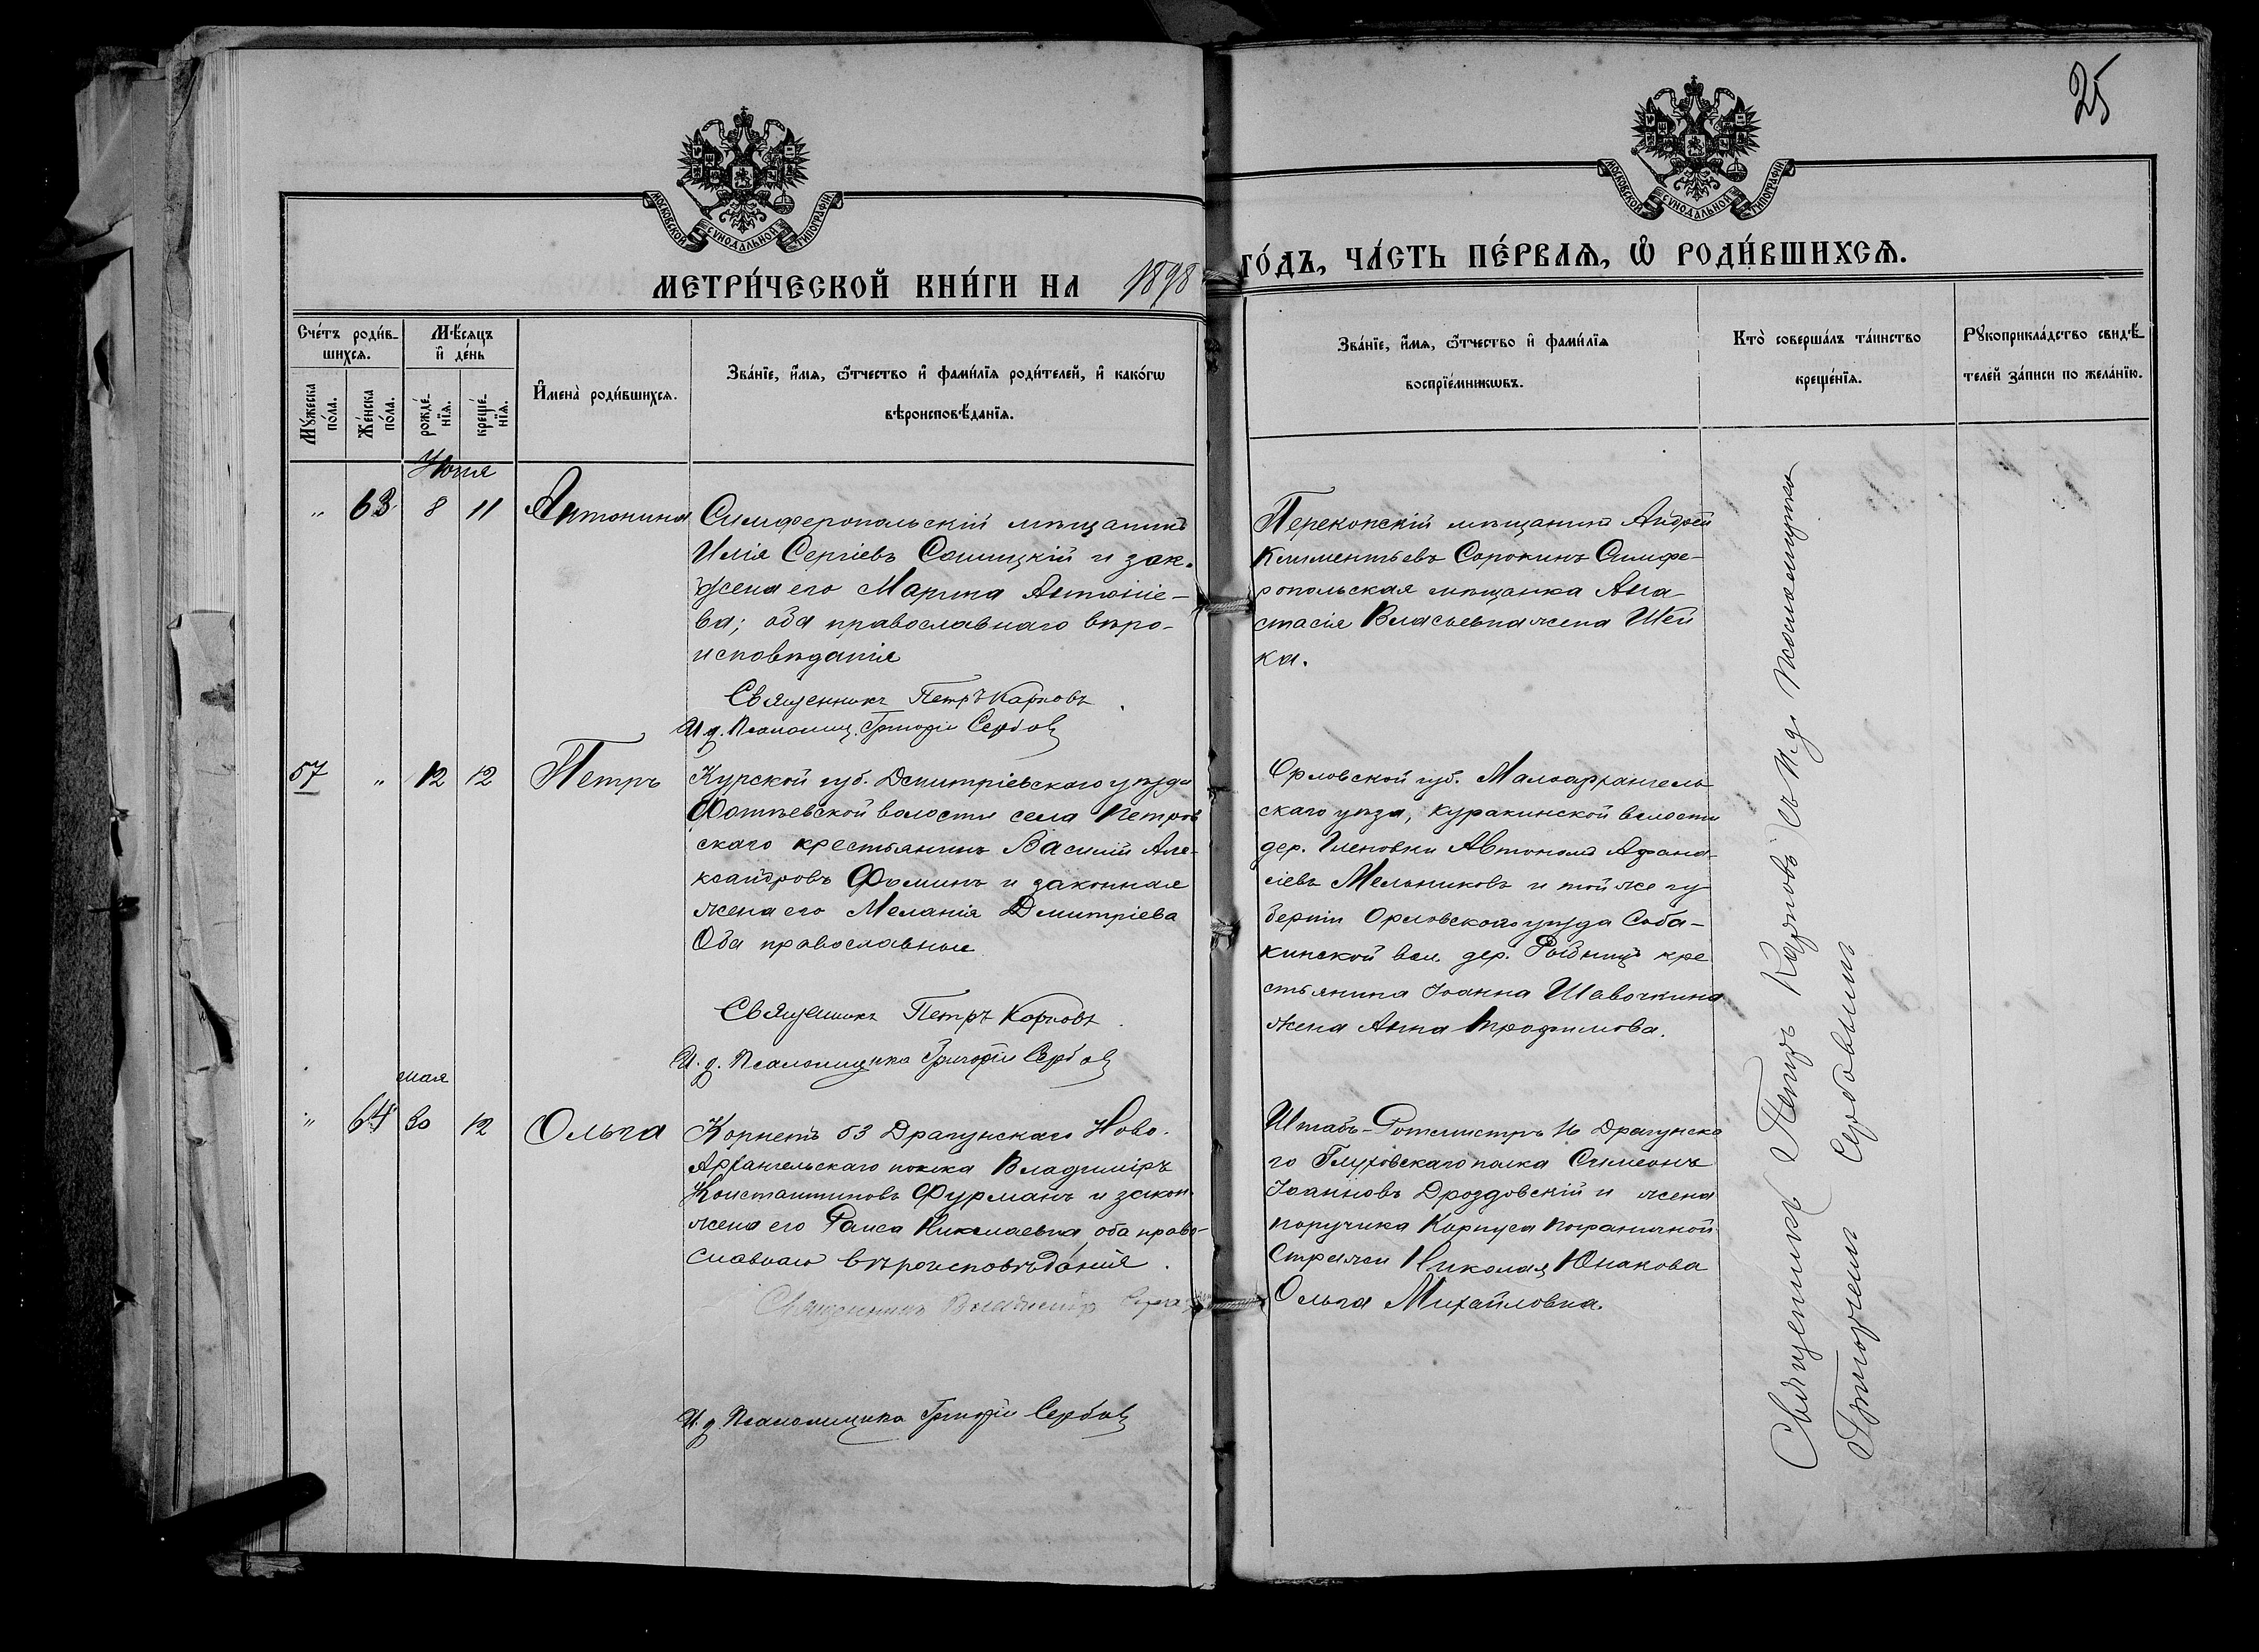 25
МОСКОВСКОЙ СѴНОДАЛЬНОЙ ТИПОГРАФІИ
МОСКОВСКОЙ СѴНОДАЛЬНОЙ ТИПОГРАФІИ
МЕТРИ́ЧЕСКОЙ КНИ́ГИ НА 1898 ГО́ДЪ, ЧА́СТЬ ПЕ́РВАЯ, Ѡ РОДИ́ВШИХСЯ.
Сче́тъ роди́в-
шихся.
Мꙋ́жеска
по́ла.
Же́нска
по́ла.
Мѣ́сяцъ
и҆ де́нь
рожде́-
нїя.
креще́-
нїя.
И҆мена̀ роди́вшихся.
Зва́нїе, и҆́мя, ѻ҆́тчество и҆ фами́лїя роди́телей, и҆ како́гѡ
вѣроисповѣ́данїя.
Зва́нїе, и҆́мя, ѻ҆́тчество и҆ фами́лїя
воспрїе́мникѡвъ.
Кто̀ соверша́лъ та́инство
креще́нїя.
Рꙋкоприкла́дство свидѣ́-
телей за́писи по жела́нїю.
Июня
" 63 8 11 Антонина
Симферопольскій мѣщанинъ
Илія Сергіевъ Сошицкій и зак.
жена его Марина Антоніе-
ва; оба православнаго вѣро-
исповѣданія
Священникъ Петръ Карповъ
И. д. Псаломщ. Григорій Сербовъ
Перекопскій мѣщанинъ Андрей
Климентьевъ Сорокинъ Симфе-
ропольская мѣщанка Ана-
стасія Власьевна жена Шей
ка.
57 " 12 12 Петръ
Курской губ. Дмитріевскаго уѣзда
Фатѣевской волости села Петров
скаго крестьянинъ Василій Але-
ксандровъ Фоминъ и законная
жена его Меланія Дмитріева
Оба православные
Священникъ Петръ Карповъ
И. д. Псаломщика Григорій Сербовъ
Орловской губ. Малоархангель
скаго уѣзда, Куракинской волости
дер. Автономъ Афана-
сіевъ Мельниковъ и той же гу
берніи Орловскаго уѣзда Соба-
кинской вол. дер. Рыбницъ кре
стьянина Іоанна Шавочкина
жена Анна Трофимова.
мая
" 64 30 12 Ольга
Корнетъ 53 Драгунскаго Ново-
Архангельскаго полка Владиміръ
Константиновъ Фурманъ и закон.
жена его Раиса Николаевна, оба право-
славнаго вѣроисповѣданія.
Священникъ Владиміръ
И. д. Псаломщика Григорій Сербовъ
Штабъ-Ротмистръ 16 Драгунска
го Глуховскаго полка Симеонъ
Іоанновъ Дроздовскій и жена
поручика Корпуса Пограничной
Стражи Николая Юнакова
Ольга Михайловна.
Священникъ Петръ Карповъ съ И. д. псаломщика
Григоріемъ Сербовымъ